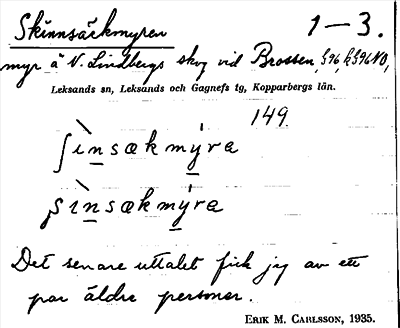 Skinnsäckmyren 1–3.
myr å N. Lindbergs skog vid Brossen,
Leksands sn, Leksands och Gagnefs tg, Kopparbergs län.
149
ʃìnsækmýra
ʂìnsækmýra
Det senare uttalet fick jag av ett
par äldre personer.
ERIK M. CARLSSON, 1935.